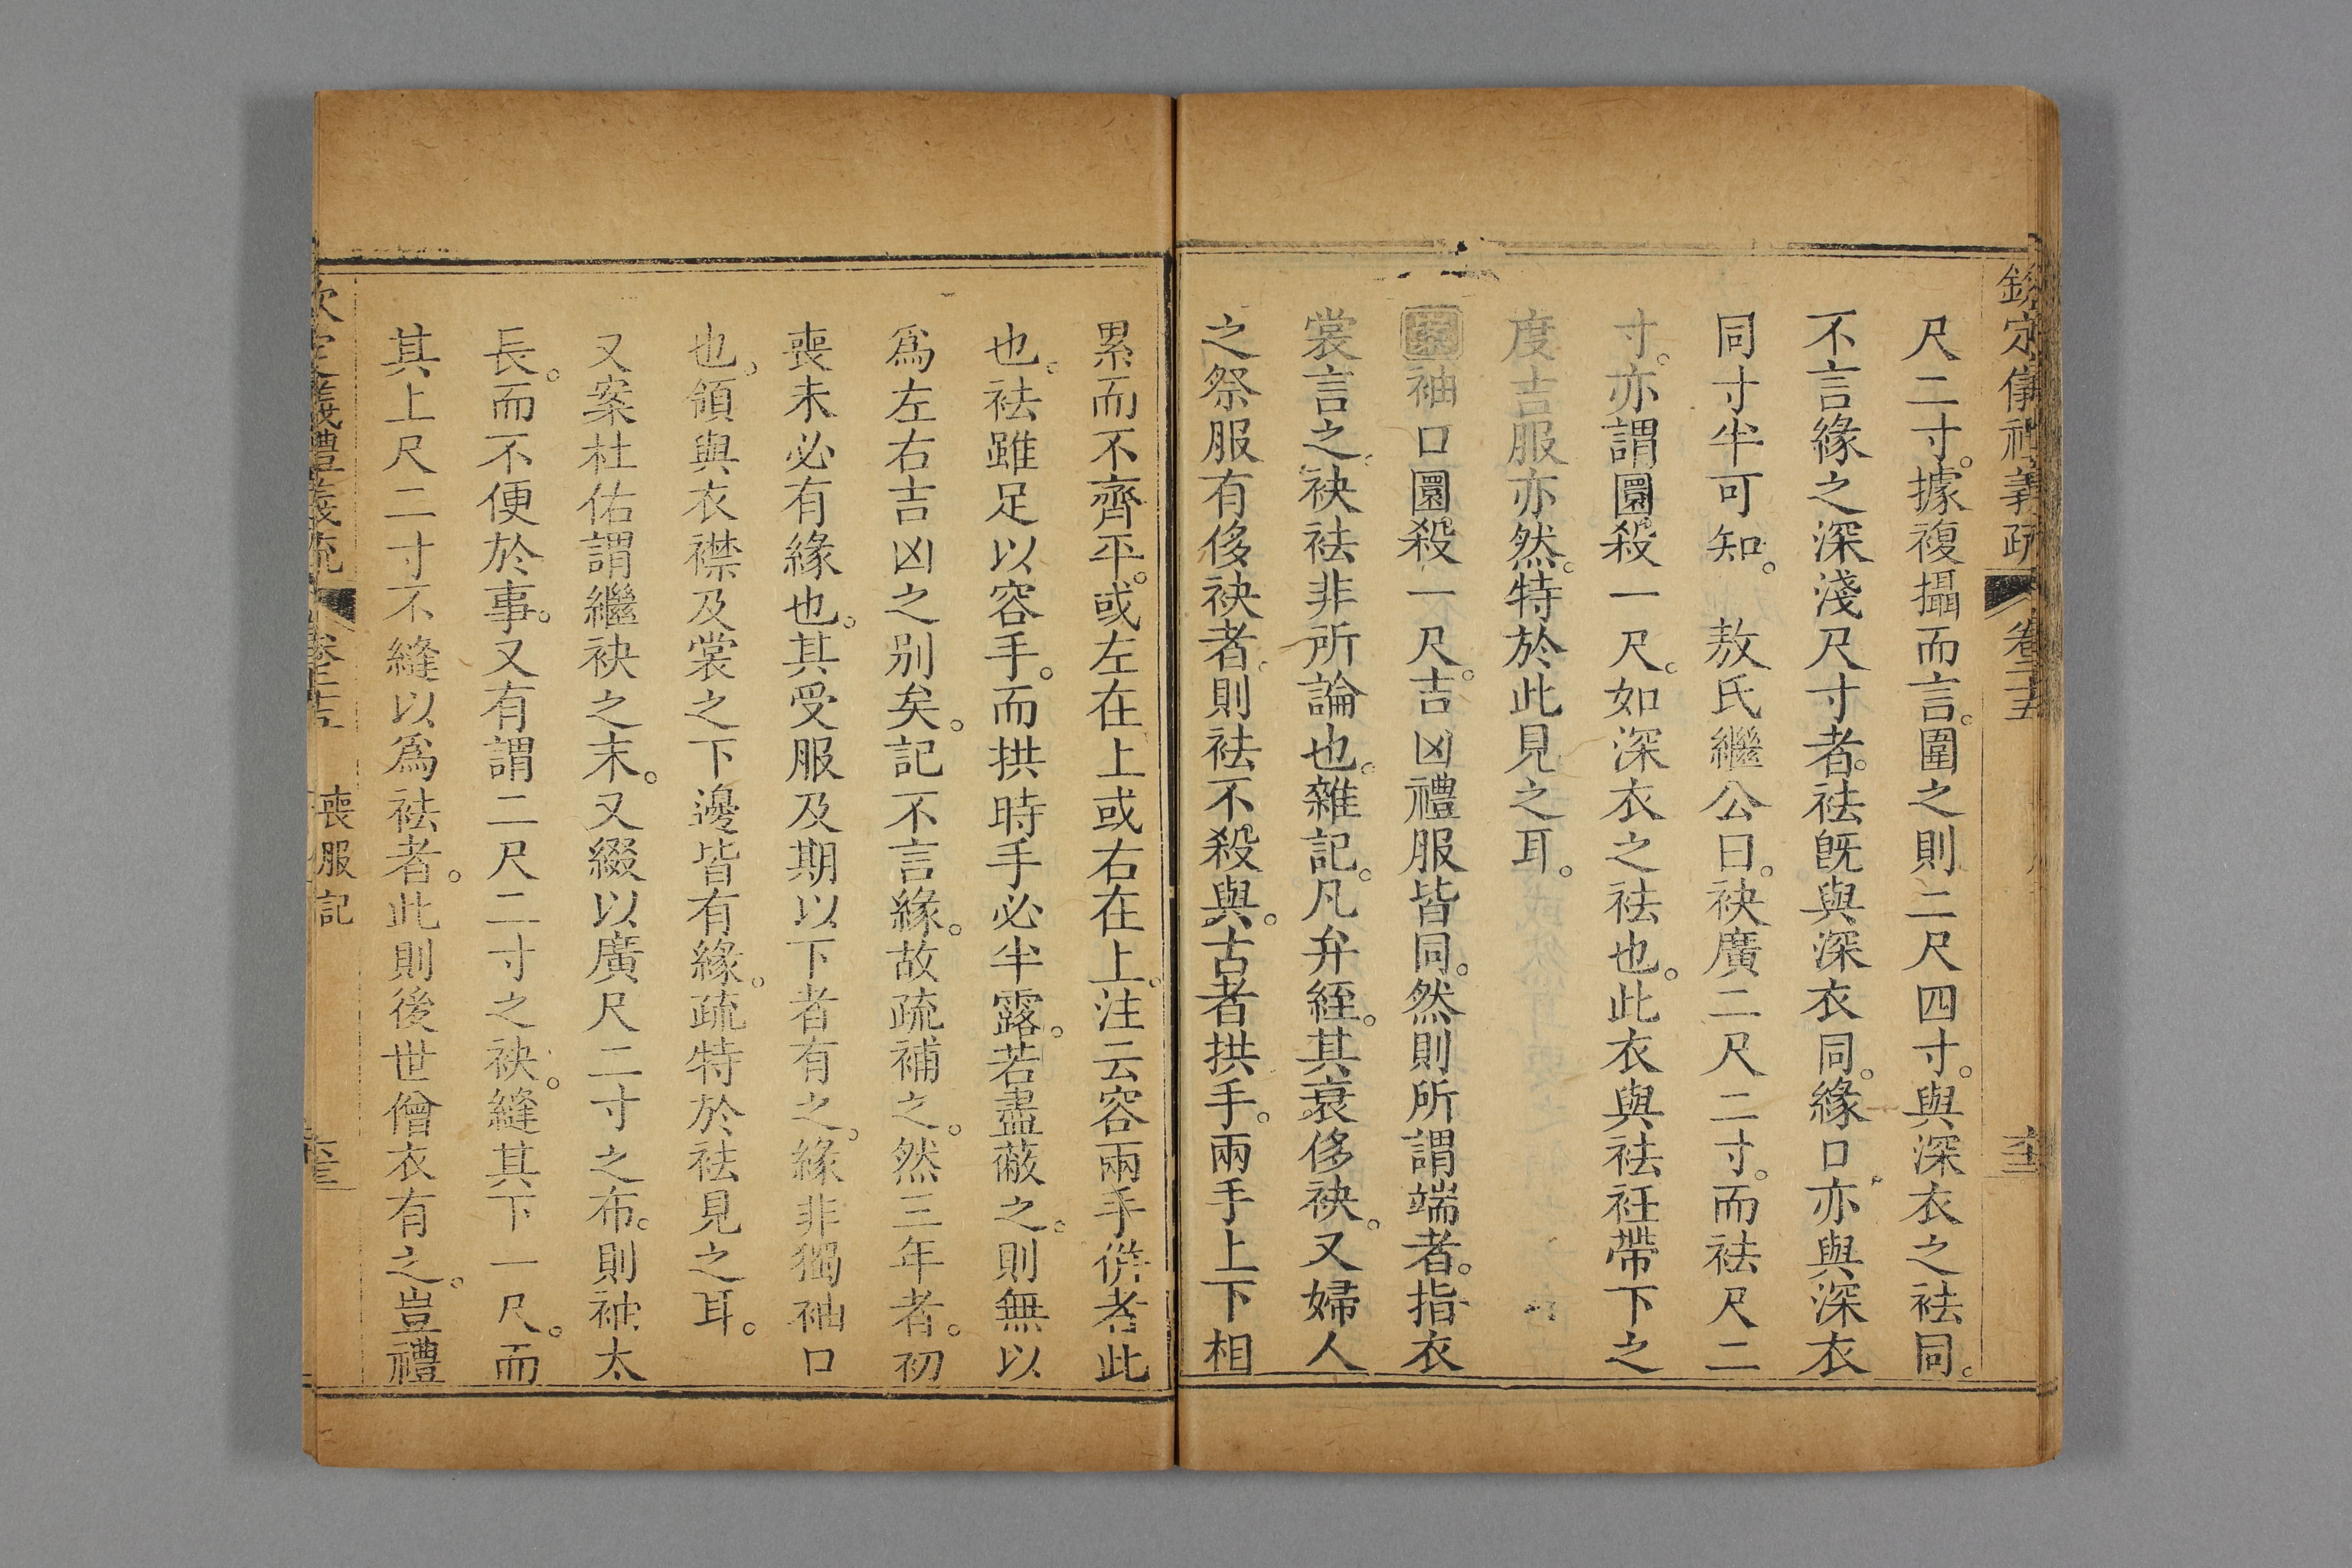 欽定儀禮義疏 卷二十五
尺二寸。據複攝而言。圍之則二尺四寸。與深衣之袪同。
不言緣之深淺尺寸者。袪旣與深衣同。緣口亦與深衣
同寸半可知。 敖氏繼公曰。袂廣二尺二寸。而袪尺二
寸。亦謂圜殺一尺。如深衣之袪也。此衣與袪衽帶下之
度吉服亦然。特於此見之耳。
案袖口圜殺一尺。吉凶禮服皆同。然則所謂端者。指衣
裳言之。袂袪非所論也。雜記。凡弁絰。其衰侈袂。又婦人
之祭服有侈袂者。則袪不殺與。古者拱手。兩手上下相
累而不齊平。或左在上或右在上。注云容兩手倂者此
也。袪雖足以容手。而拱時手必半露。若盡蔽之。則無以
爲左右吉凶之別矣。記不言緣。故疏補之。然三年者。初
喪未必有緣也。其受服及期以下者有之。緣非獨袖口
也。領與衣襟及裳之下邊皆有緣。疏特於袪見之耳。
又案杜佑謂繼袂之末。又綴以廣尺二寸之布。則袖太
長。而不便於事。又有謂二尺二寸之袂。縫其下一尺。而
其上尺二寸不縫以爲袪者。此則後世僧衣有之。豈禮
欽定儀禮義疏 喪服記